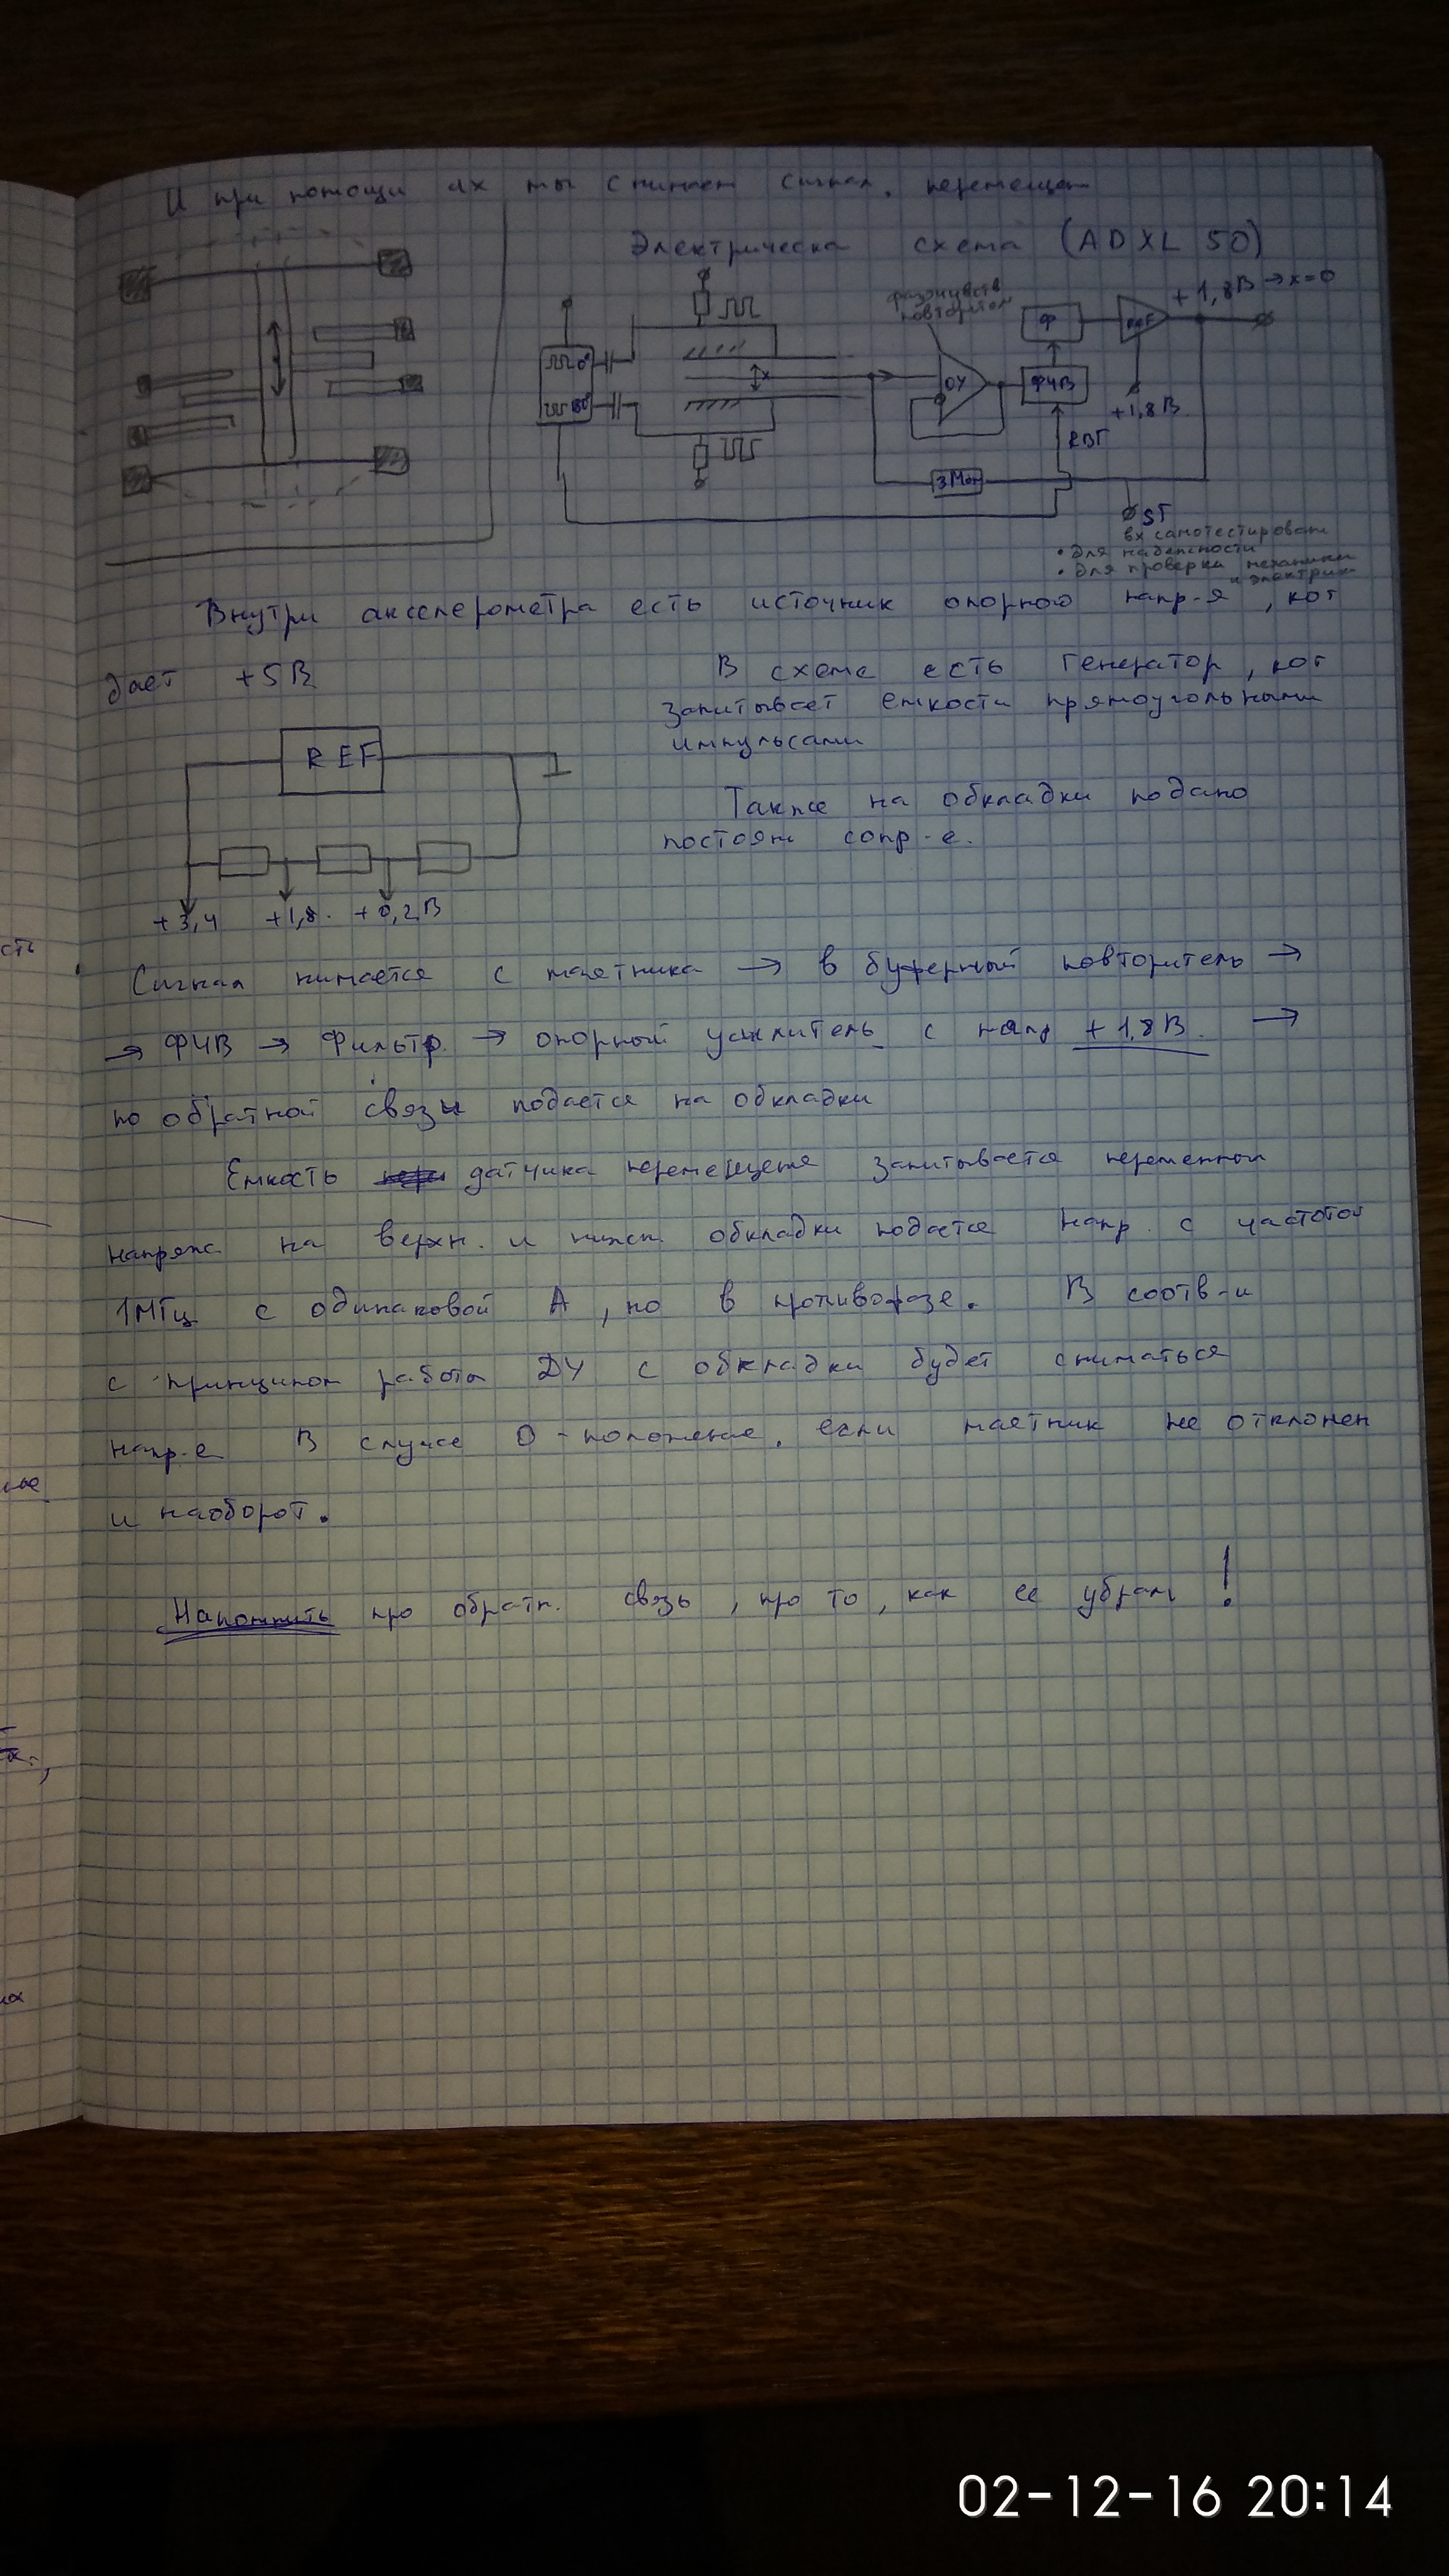 И при помощи их мы снимаем сигнал, перемещен
Электрическа схема (ADXL 50)
фазочувств
повторител
+1,8В → x=0
0°
180°
x
ОУ
Ф
ФЧВ
+1,8В
КВГ
3МОм
ST
вх самотестирован
• для надежности
• для проверки механики
и электрик
Внутри акселерометра есть источник опорного напр-я, кот
дает +5В
В схеме есть генератор, кот
запитывает емкости прямоугольными
импульсами
REF
Также на обкладки подано
постоян сопр-е.
+3,4 +1,8. +0,2В
Сигнал нимается с маятника → в буферный повторитель →
→ ФЧВ → Фильтр. → опорный усилитель с напр +1,8В. →
по обратной связи подается на обкладки
Емкость датчика перемещения запитывается переменном
напряж на верхн. и нижн. обкладки подается напр. с частотой
1МГц с одинаковой А, но в противофазе. В соотв-и
с принципом работы ДУ с обкладки будет сниматься
напр-е В случае 0-положение, если маятник не отклонен
и наоборот.
Напомнить про обратн. связь, про то, как ее убрали!
сть
ых
02-12-16 20:14